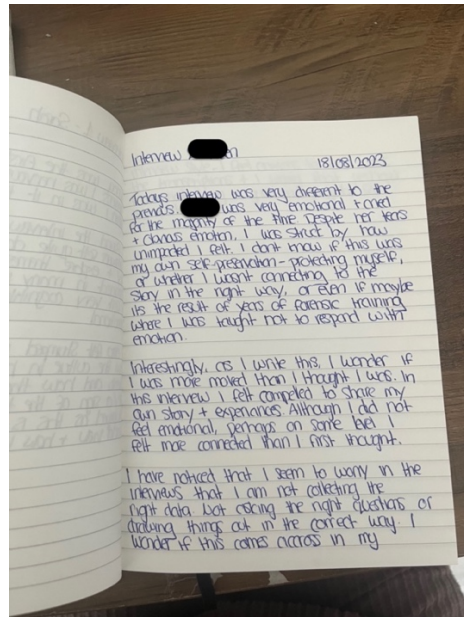 Interview on
18/08/2023
Todays interview was very different to the
previous. was very emotional + cried
for the majority of the time. Despite her tears
+ obvious emotion, I was struck by how
unimpacted I felt. I dont know if this was
my own self-preservation - protecting myself,
or whether I wasnt connecting to the
story in the right way, or even if maybe
its the result of years of forensic training
where I was taught not to respond with
emotion.
Interestingly, as I write this, I wonder if
I was more moved than I thought I was. In
this interview I felt compelled to share my
own story + experiences. Although I did not
feel emotional, perhaps on some level I
felt more connected than I first thought.
I have noticed that I seem to worry in the
interviews that I am not collecting the
right data, not asking the right questions or
drawing things out in the correct way. I
wonder if this comes across in my